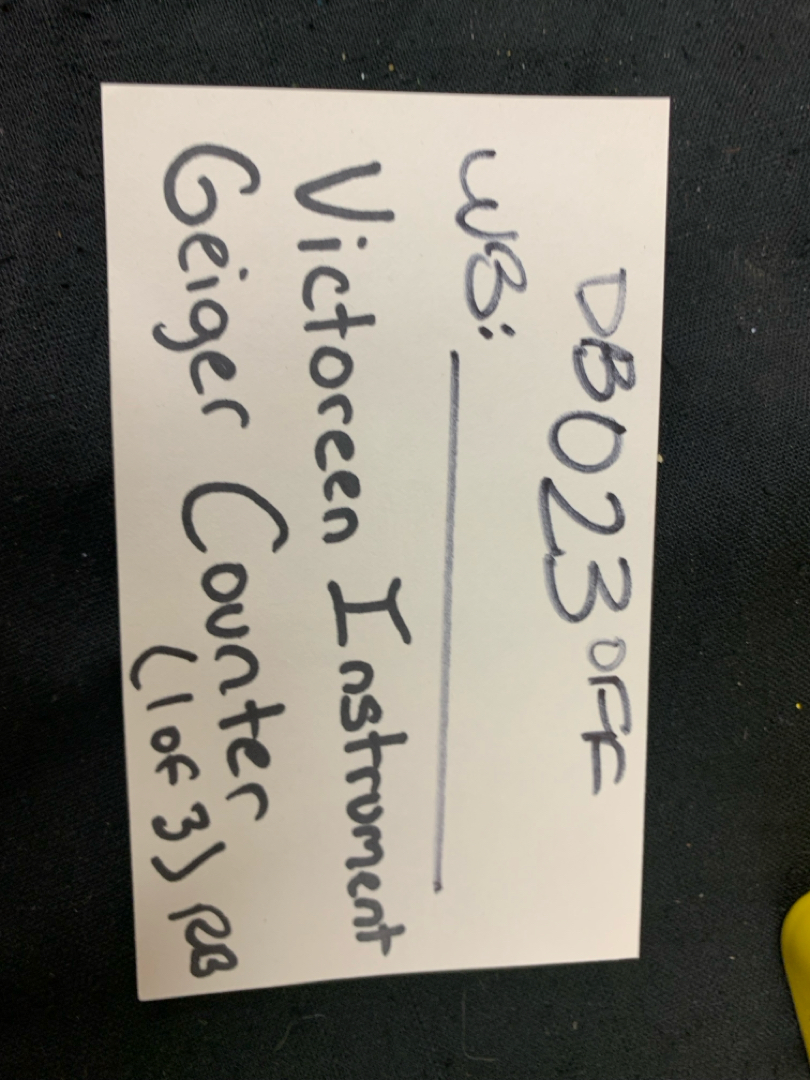 DB023OFF
WB:
Victoreen Instrument
Geiger Counter
(1 of 3) RB